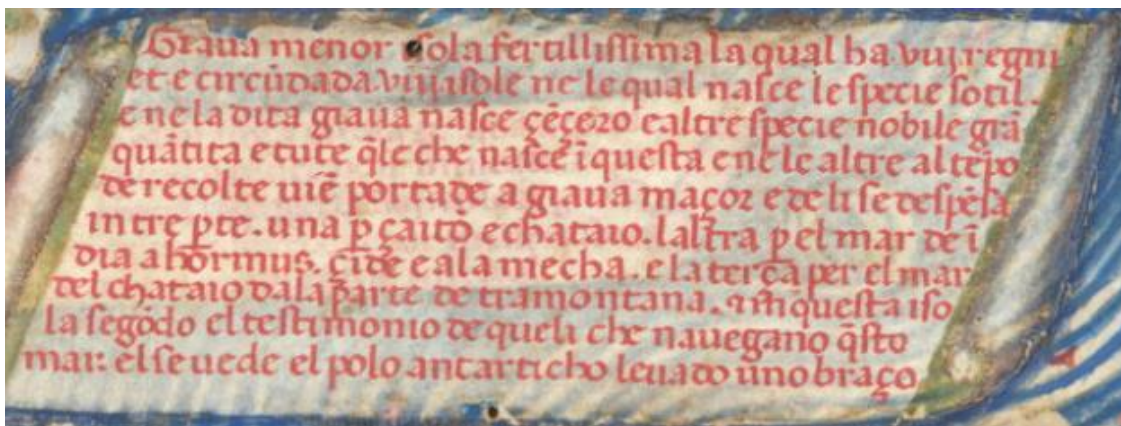 Giava menor isola fertillissima la qual ha viij regni
et e circūdada viij isole ne le qual nasce le specie sotil.
e ne la dita giava nasce çēçero e altre specie nobile grā
quātita e tute q̄le che nasce ī questa e ne le altre al tēpo
de recolte viē portade a giava maçor e de li se despēsa
in tre ꝑte. una ꝑ çaitō e chataio. laltra ꝑ el mar de ī
dia a hormus. çide e a la mecha. e la terça per el mar
del chataio da la parte de tramontana. in questa iso
la segōdo el testimonio de queli che navegano q̄sto
mar. el se vede el polo antarticho levado uno braço